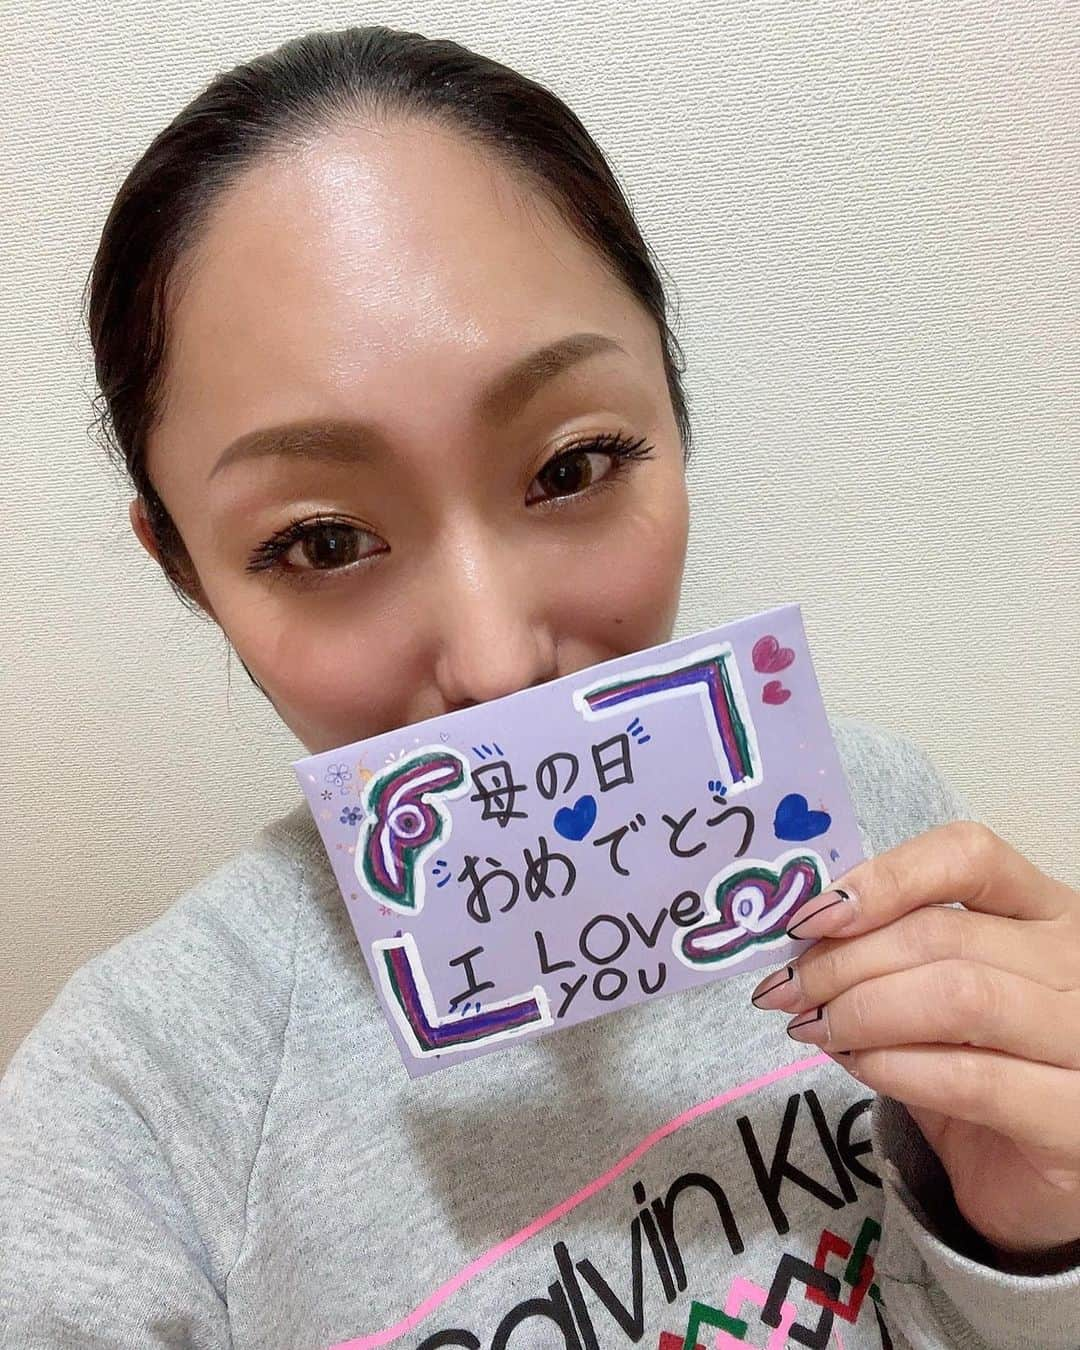 母の日
おめでとう
I Love
YOU
Calvin Kle